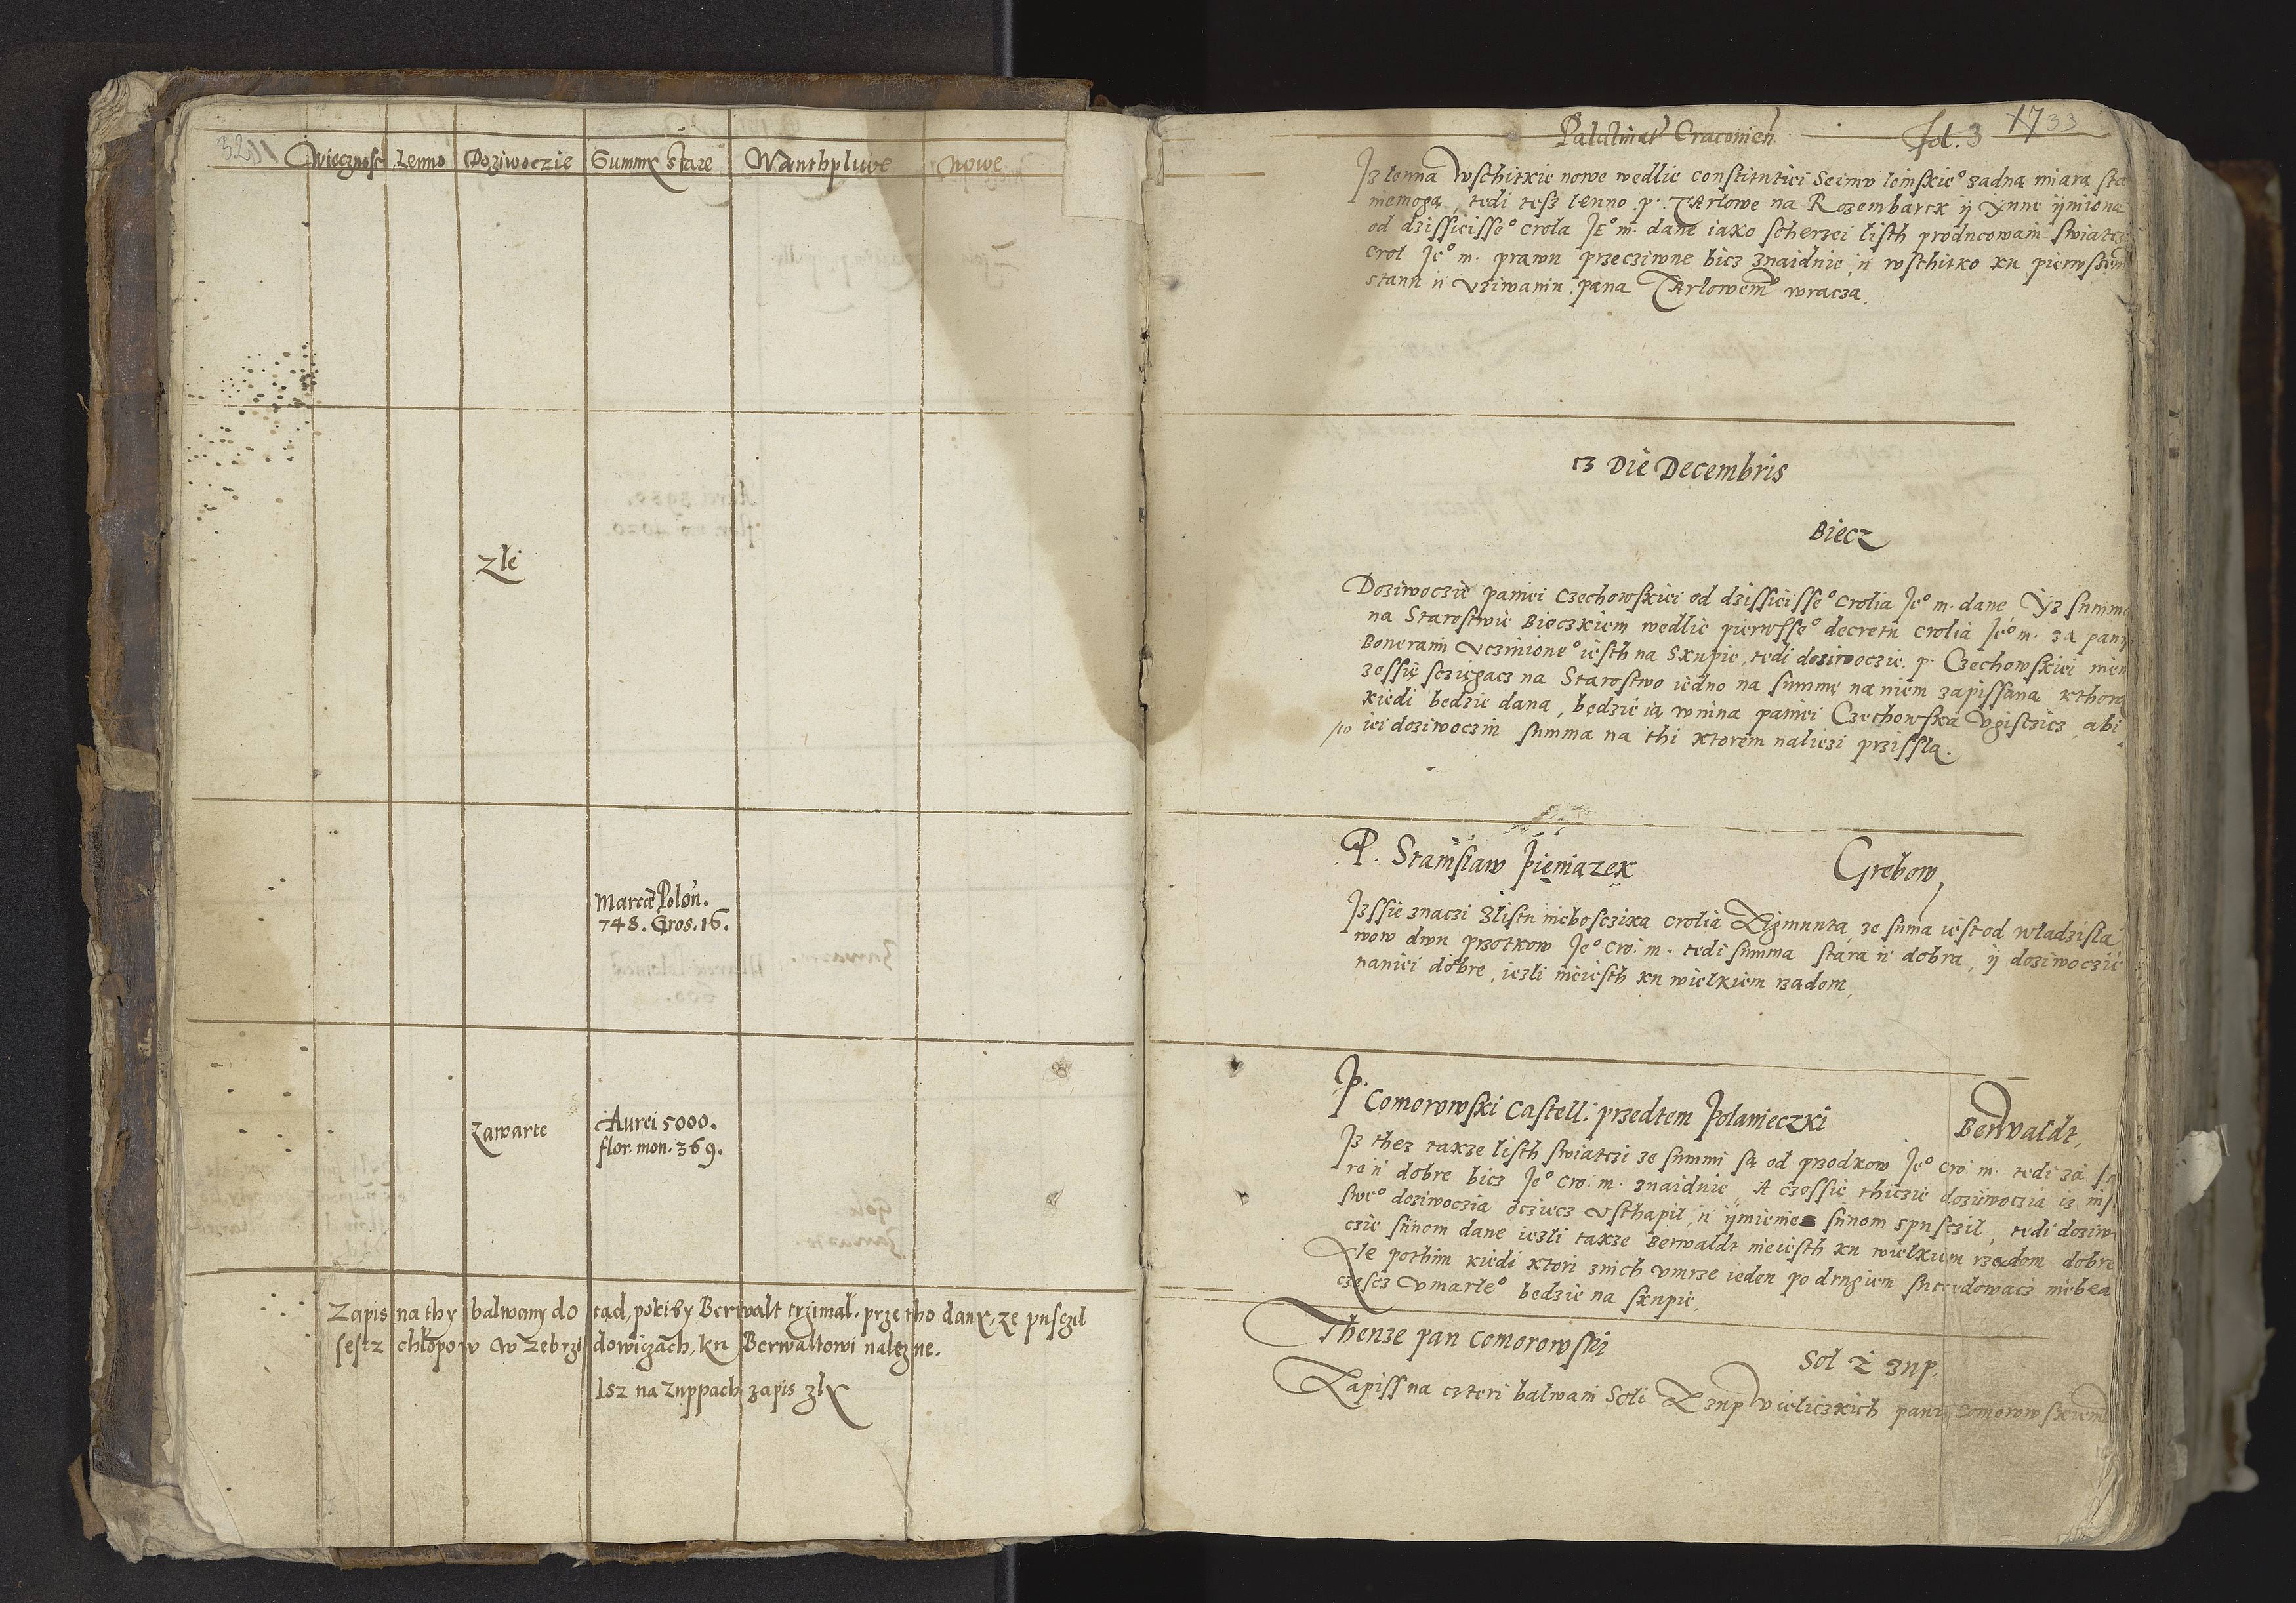 Wiecznosc Lenno Doziwoczie Summy stare Wanthpliwe Nowe
Zle
Marcæ Polon.
748. Gros. 16.
Zawarte
Aurei 5000.
flor. mon. 369.
Zapis na thy balwany do tąd, pokiby Berwalt trzimał. prze tho dany, ze pusczil
sescz chłopow w Zebrzidowiczach, ku Berwaltowi nalezne.
Isz na Zuppach zapis zly
Palatinat Cracouien
fol. 3 17 33
Jz lenna wschitkie nowe wedlie constitutiei Seimu lomskie° zadną miarą sta
niemogą, tedi tesz lenno p. Tarlowe na Rozembark ÿ ynne ÿmiona
od dzissieisse° Crola Je° m. dane iako scherzei listh producowani swiatczi
Crol Je° m. prawu przecziwne bicz znaiduie, ii wschitko ku pierwssem
stanu ii uziwaniu pana Tarlowem° wracza.
13 Die Decembris
Biecz
Doziwoczie paniei Czechowskiei od dzissieisse° Crolia Je° m. dane Yz summa
na Starostwie Bieczkiem wedlie pierwsse° decretu Crolia Je° m. za pany
Bonerami uczinione° iesth na skupie, tedi doziwoczie p. Czechowskiei niem
zessię scziegacz na Starostwo iedno na summę na niem zapissaną kthora
kiedi bedzie dana, będzie ią winna paniei Czechowska ugisczicz, abi
po iei doziwocziu summa na thi ktorem naliezi przissla.
P. Stanislaw Pieniązek Grebow,
Jz ssie znaczi z listu nieboszczika Crolia Zigmunta, ze suma iest od wladzisla
wow dwu przotkow Je° Cro. m. tedi summa stara ii dobra, ÿ doziwoczie
naniei dobre, iezli nieiesth ku wielkiem rządom,
P. Comorowski Castell. przedtem Polanieczki Berwaldt,
Jz thez takze listh swiatczi ze summi są od przodkow Je° Cro. m. tedi za st
re ii dobre bicz Je° Cro. m. znaiduie, A czossie thicze doziwoczia iz
swe° doziwoczia ocziecz usthapil, ii ÿmienie siinom spusczil, tedi doziw
czie siinom dane iezli takze Berwaldt nieiesth ku wielkiem rządom dobre
Ale pothim kiedi ktori znich umrze ieden po drugiem succedowacz niebęd
częscz umarle° bedzie na skupie,
Thenze pan Comorowski Sol z zup,
Zapiss na czteri balwani Soli Z zup wieliczkich panu Comorowskiem